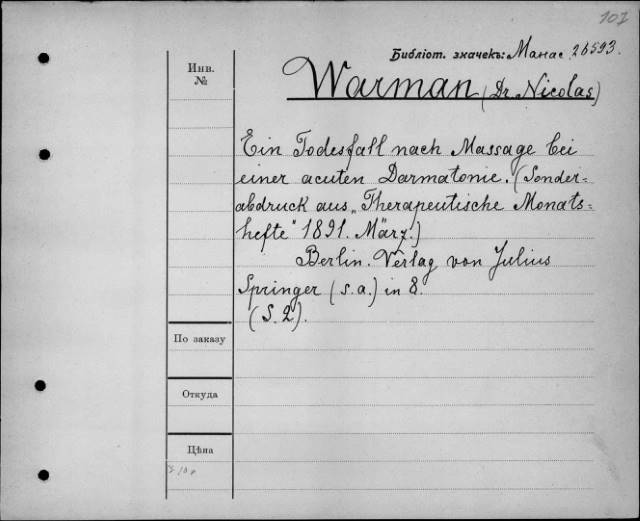 107
Библіот. значекъ: Манас. 26593.
Инв.
№
Warman (Dr. Nicolas)
Ein Todesfall nach Massage bei
einer acuten Darmatonie. (Sonder=
abdruck aus „Therapeutische Monats=
hefte" 1891. März.)
Berlin. Verlag von Julius
Springer (s.a.) in 8.
(S. 2).
По заказу
Откуда
Цѣна